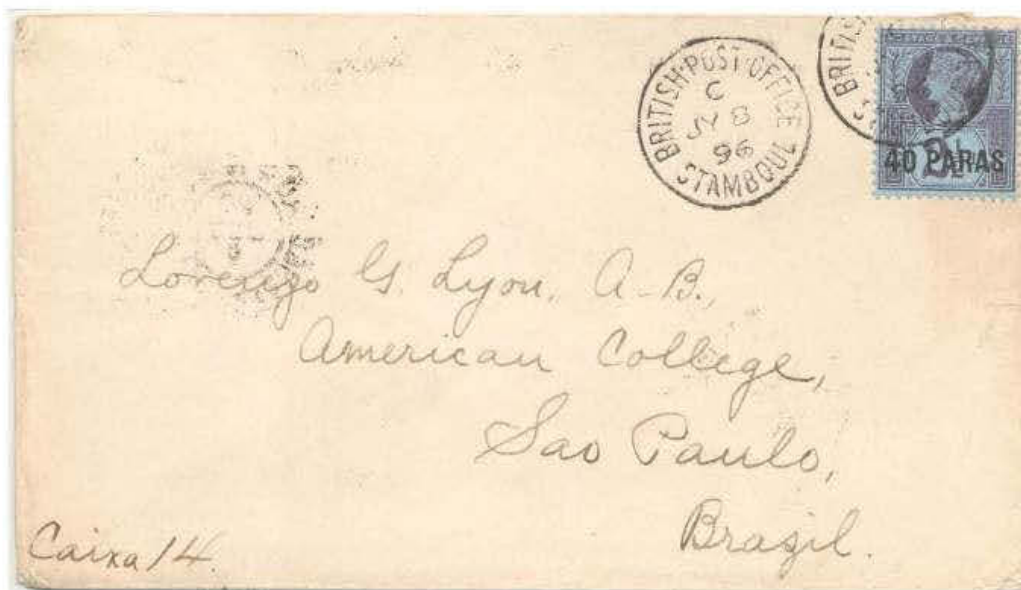 BRITISH POST OFFICE
C
JY 8
96
STAMBOUL
BRITISH
40 PARAS
Lorenzo G. Lyon, A-B.,
American College,
Sao Paulo,
Brazil.
Caixa 14.